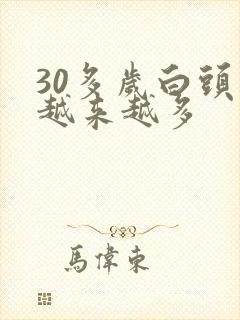 30多歲白頭
越來越多
馬偉東